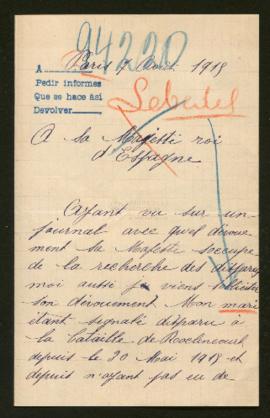 94220
Paris 7 Août 1918
A
Pedir informes
Que se hace ási
Devolver
A Sa Majesté roi
d'Espagne
Ayant vu sur un
journal avec quel dévoue
ment Sa Majesté s'occupe
de la recherche des disparus
moi aussi je viens
son dévouement. Mon mari
étant signalé disparu à
la bataille de Roclincourt
depuis le 30 Mai 1915 et
depuis n'ayant pas eu de